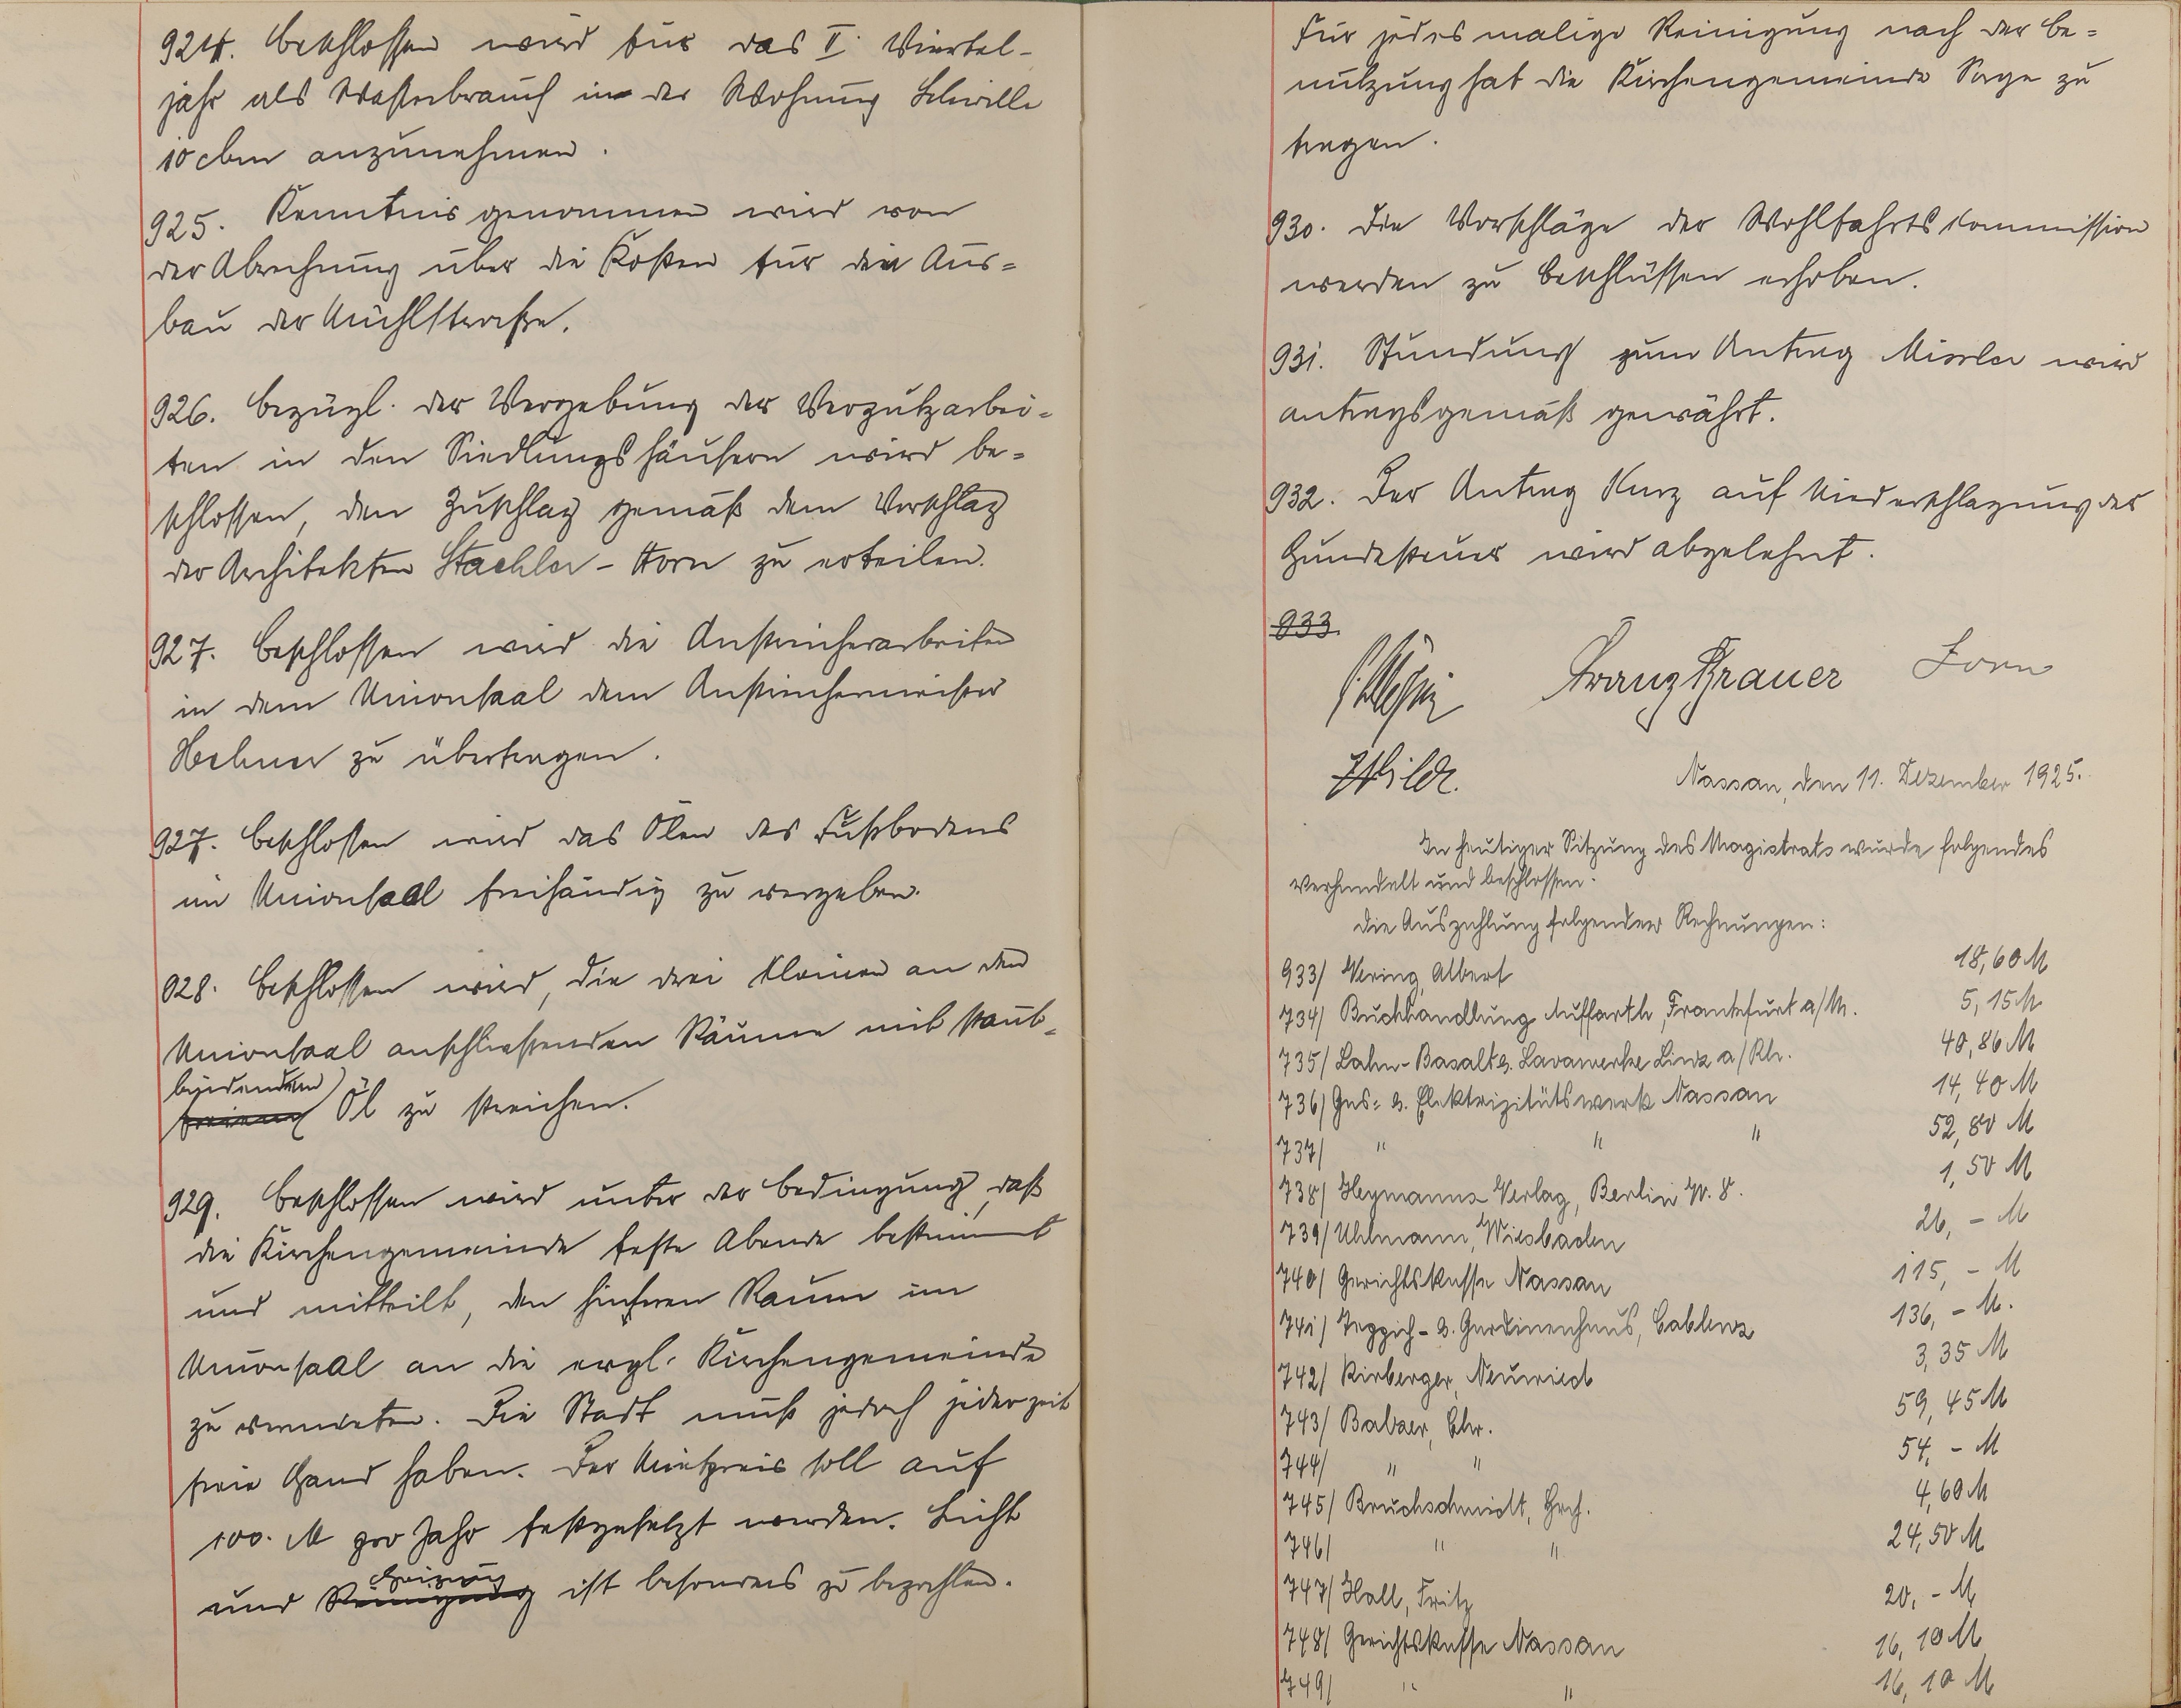 924. Beschlossen wird für das II. Viertel-
jahr als Wasserbrauch in der Wohnung
10 cbm anzunehmen.
925. Kenntnis genommen wird von
der Abrechnung über die Kosten für den Aus=
bau der Mühlstraße.
926. Bezügl. der Vergebung der Verputzarbei-
ten in den Siedlungshäusern wird be=
schlossen, den Zuschlag gemäß dem Vorschlag
der Architekten Staehler - Horn zu erteilen.
927. Beschlossen wird die Anstreicherarbeiten
in dem Unionsaal dem Anstreichermeister
Hehner zu übertragen.
927. Beschlossen wird das Ölen des Fußbodens
im Unionsaal freihändig zu vergeben.
928. Beschlossen wird, die drei kleinen an den
Unionsaal anschließenden Räume mit staub-
bindendem
Öl zu streichen.
929. Beschlossen wird unter der Bedingung, daß
die Kirchengemeinde feste Abende bestimmt
und mitteilt, den hinteren Raum im
Unionsaal an die evgl. Kirchengemeinde
zu vermieten. Die Stadt muß jedoch jederzeit
freie Hand haben. Der Mietpreis soll auf
100. M pro Jahr festgesetzt werden. Licht
Heizung
und Reinigung ist besonders zu bezahlen.
Für jedesmalige Reinigung nach der Be=
nutzung hat die Kirchengemeinde Sorge zu
tragen.
930. Die Vorschläge der Wohlfahrtskommission
werden zu Beschlüssen erhoben.
931. Stundung zum Antrag wird
antragsgemäß gewährt.
932. Der Antrag Kurz auf Niederschlagung der
Hundesteuer wird abgelehnt.
933.
Franz Brauer Horn
Nassau, den 11. Dezember 1925.
In heutiger Sitzung des Magistrats wurde folgendes
verhandelt und beschlossen:
die Auszahlung folgender Rechnungen:
933/ Vering, Albert 18,60 M
734/ Buchhandlung Auffarth, Frankfurt a/M. 5,15 M
735/ Lahn-Basalt u. Lavawerke Linz a/Rh. 40,86 M
736/ Gas= u. Elektrizitätswerk Nassau 14,40 M
737/ " " " 52,80 M
738/ Heymanns Verlag, Berlin W. 8. 1,50 M
739/ Uhlmann, Wiesbaden 26,- M
740/ Gerichtskasse Nassau 115,- M
741/ Teppich- u. Gardinenhaus, Coblenz 136,- M.
742/ Kirberger, Neuwied 3,35 M
743/ Balzer, Chr. 59,45 M
744/ " " 54,- M
745/ Bruchschmidt, Hch. 4,60 M
746/ " " 24,50 M
747/ Hall, Fritz 20,- M
748/ Gerichtskasse Nassau 16,10 M
749/ " " 16,10 M